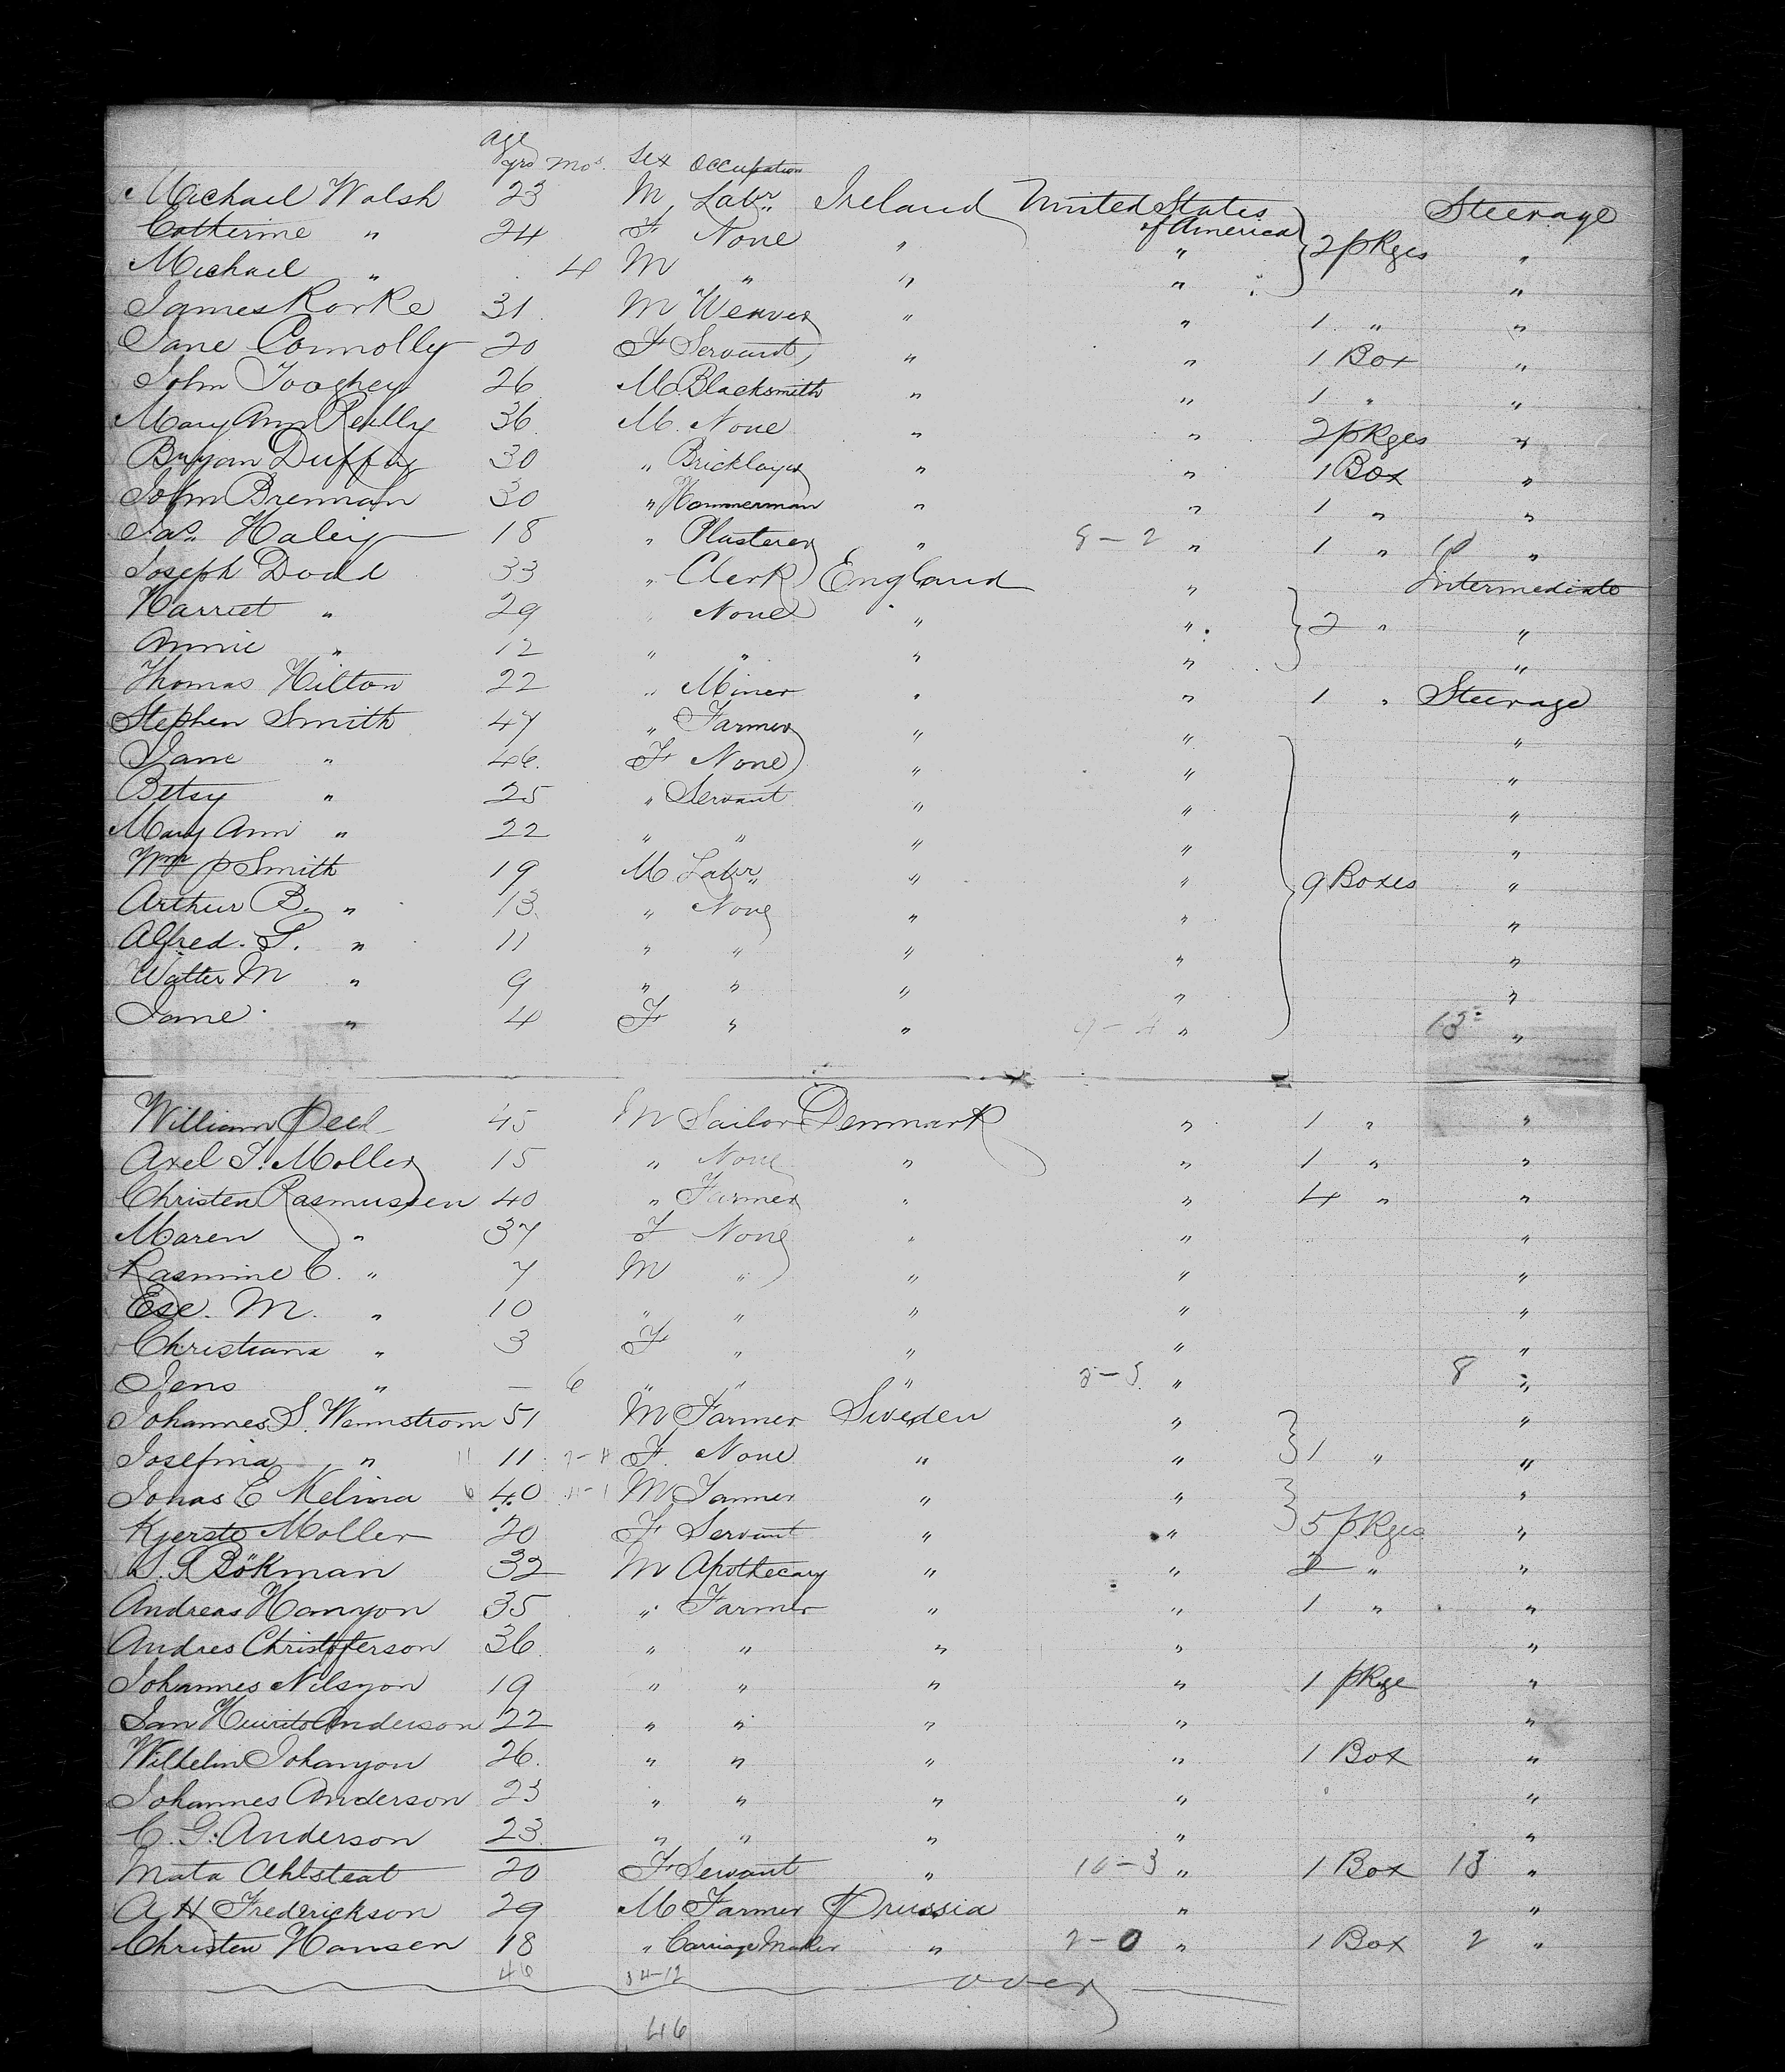 age
yrs Mos. Sex Occupation
Michael Walsh 23 M Labr. Ireland United States Steerage
Catherine " 24 F None " of America " 2 pkges "
Michael " 4 M " " " "
James Rorke 31 M Weaver " " 1 " "
Jane Connolly 20 F Servant " " 1 Box "
John 26 M Blacksmith " " 1 " "
Mary Ann Reilly 36 M. None " " 2 pkges "
Bryan Duffy 30 " Bricklayer " " 1 Box "
John Brennan 30 " Hammerman " " 1 " "
Jas. Haley 18 " Plasterer " 8-2 " 1 " 10 "
Joseph Dodd 33 " Clerk England " Intermediate
Harriet " 29 " None " " 2 " "
Annie " 12 " " " " "
Thomas Hilton 22 " Miner " " 1 " Steerage
Stephen Smith 47 " Farmer " " "
Jane " 46 F None " " "
Betsy " 25 " Servant " " "
Mary Ann " 22 " " " " "
Wm P Smith 19 M Labr. " " 9 Boxes "
Arthur B. " 13 " None " " "
Alfred. S. " 11 " " " " "
Walter M " 9 " " " " "
Jane " 4 F " " 9-4 " 13 "
William Peel 45 M Sailor Denmark " 1 " "
Axel S. Moller 15 " None " " 1 " "
Christen Rasmussen 40 " Farmer " " 4 " "
Maren " 37 F None " " "
Rasmine C. " 7 M " " " "
Ese. M. " 10 " " " " "
Christiana " 3 F " " " "
Jens " — 6 " " " 3-5 " 8 "
Johannes S. Wennstrom 51 M Farmer Sweden " "
Josefina " 11 11 F. None " " 1 " "
Jonas E Melina 6 40 M Farmer " " "
Kjerste Moller 20 F Servant " " 5 pkges "
Bökman 32 M Apothecary " " 2 " "
Andreas Hanson 35 " Farmer " " 1 " "
Andres Christofferson 36 " " " " "
Johannes Nilsson 19 " " " " 1 pkge "
Jan Anderson 22 " " " " "
Wilhelm Johanson 26 " " " " 1 Box "
Johannes Anderson 23 " " " " "
C. G. Anderson 23 " " " " "
Mata Ahlsteat 20 F Servant " 10-3 " 1 Box 13 "
A H Frederickson 29 M Farmer Prussia " "
Christen Hansen 18 " Carriage Maker " 2-0 " 1 Box 2 "
46 34-12
over
46